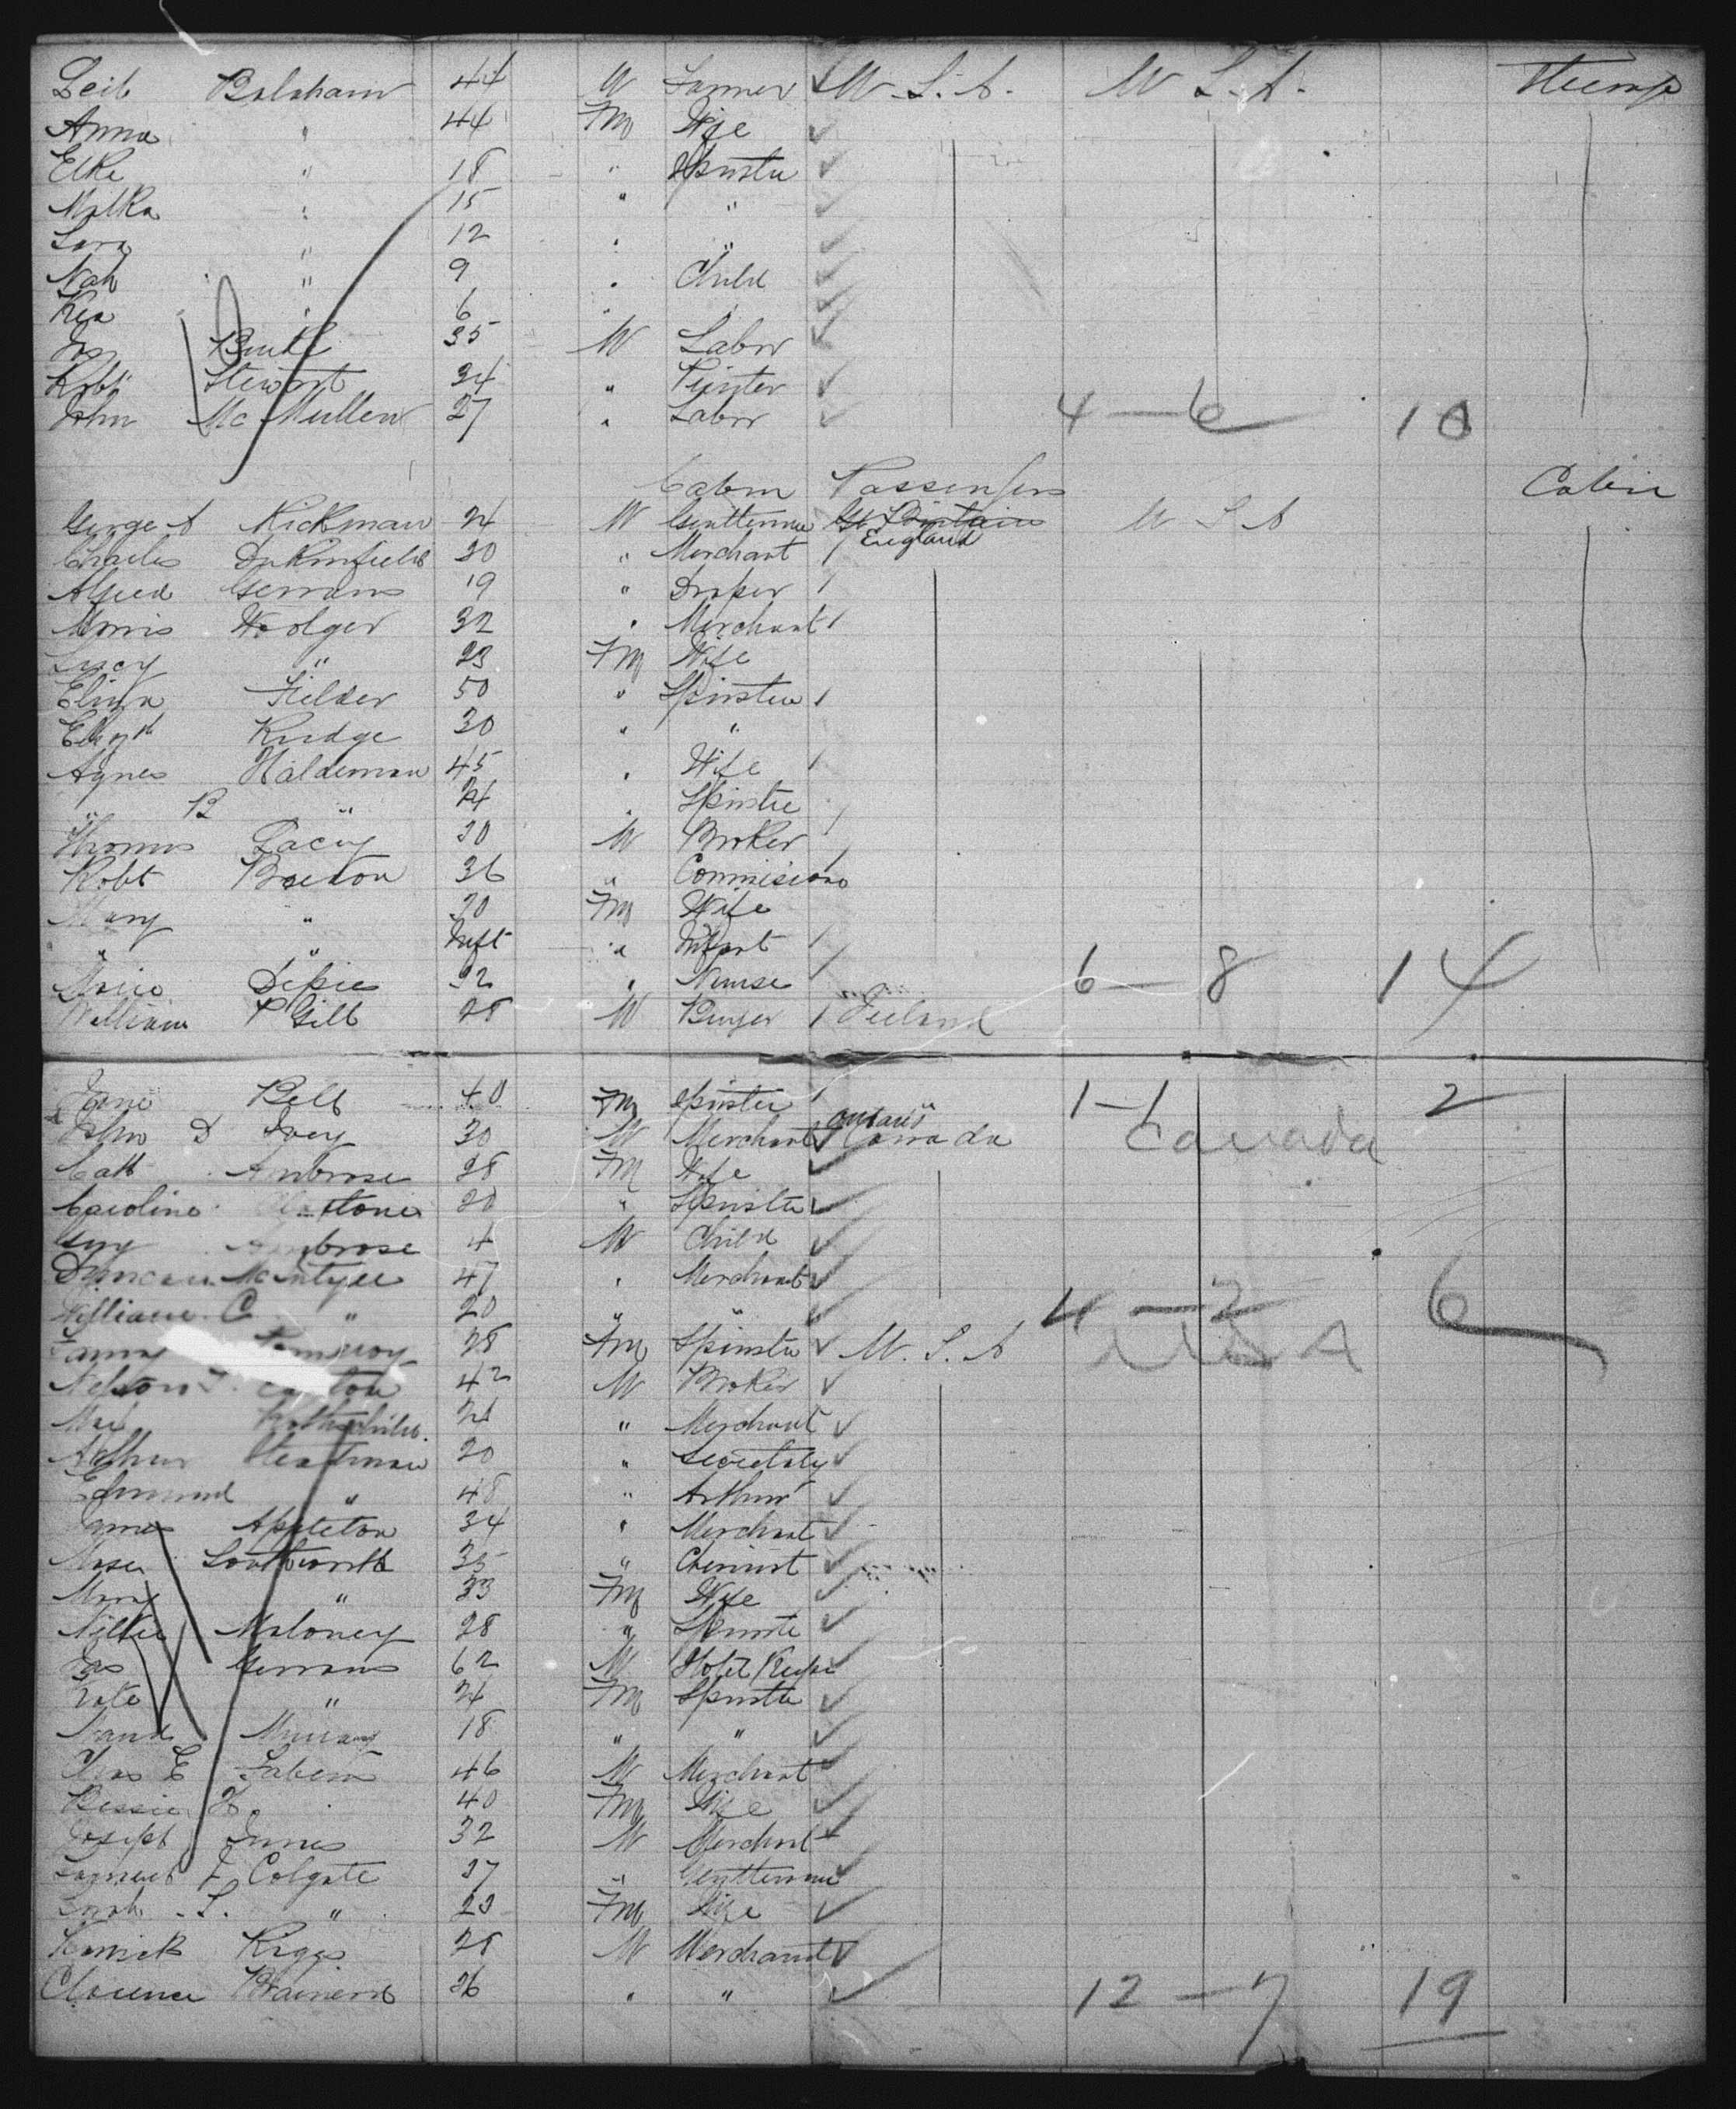 Leib Balsham 44 M Farmer U.S.A. U.S.A. Steerage
Anna " 44 Fm Wife
Elke " 18 " Spinster
Malka " 15 " "
Sara " 12 " "
Nah " 9 " Child
" 6 "
Jas Burke 35 M Labor
Robt Stewart 34 " Printer
John McMullen 27 " Labor 4 — 6 10
Cabin Passengers Cabin
George A Hickman 24 M Gentleman Gt Britain U S A
Charles Dukinfield 20 " Merchant England
Alfred Gerrans 19 " Draper
Morris Wolger 32 " Merchant
Lucy " 23 Fm Wife
Eliza Fielder 50 " Spinster
Elizth Rudge 30 " "
Agnes Haldeman 45 " Wife
" B " 24 " Spinster
Thomas Lacey 30 M Broker
Robt 36 " Commisiono
Mary " 30 Fm Wife
" " Inft " Infant
32 " Nurse 6 — 8 14
William P Gill 28 M Buyer Ireland
Jane Bell 40 Fm Spinster 1 — 1 2
John D Ivey 30 M Merchant Ontario Canada Canada
Ambrose 28 Fm Wife
Caroline 20 " Spinster
Guy Ambrose 4 M Child
Duncan McIntyre 47 " Merchant
William C " 20 " " 4 — 2 6
Fanny Pomeroy 28 Fm Spinster U.S.A USA
Nelson 42 M Broker
24 " Merchant
Arthur Stedman 20 " Secretary
Edmund " 48 " Arthur
James Appleton 34 " Merchant
Moses Southworth 35 " Chemist
Mary " 33 Fm Wife
Nellie Maloney 28 " Spinster
Jas Gerrans 62 M Hotel Keeper
Kate " 24 Fm Spinster
Maud Murray 18 " "
Thos E 46 M Merchant
Bessie H. 40 Fm Wife
Joseph Innes 32 M Merchant
F Colgate 27 " Gentleman
Sarah S. " 23 Fm Wife
Riggs 28 M Merchant
Clarence Brainerd 26 " " 12 — 7 19